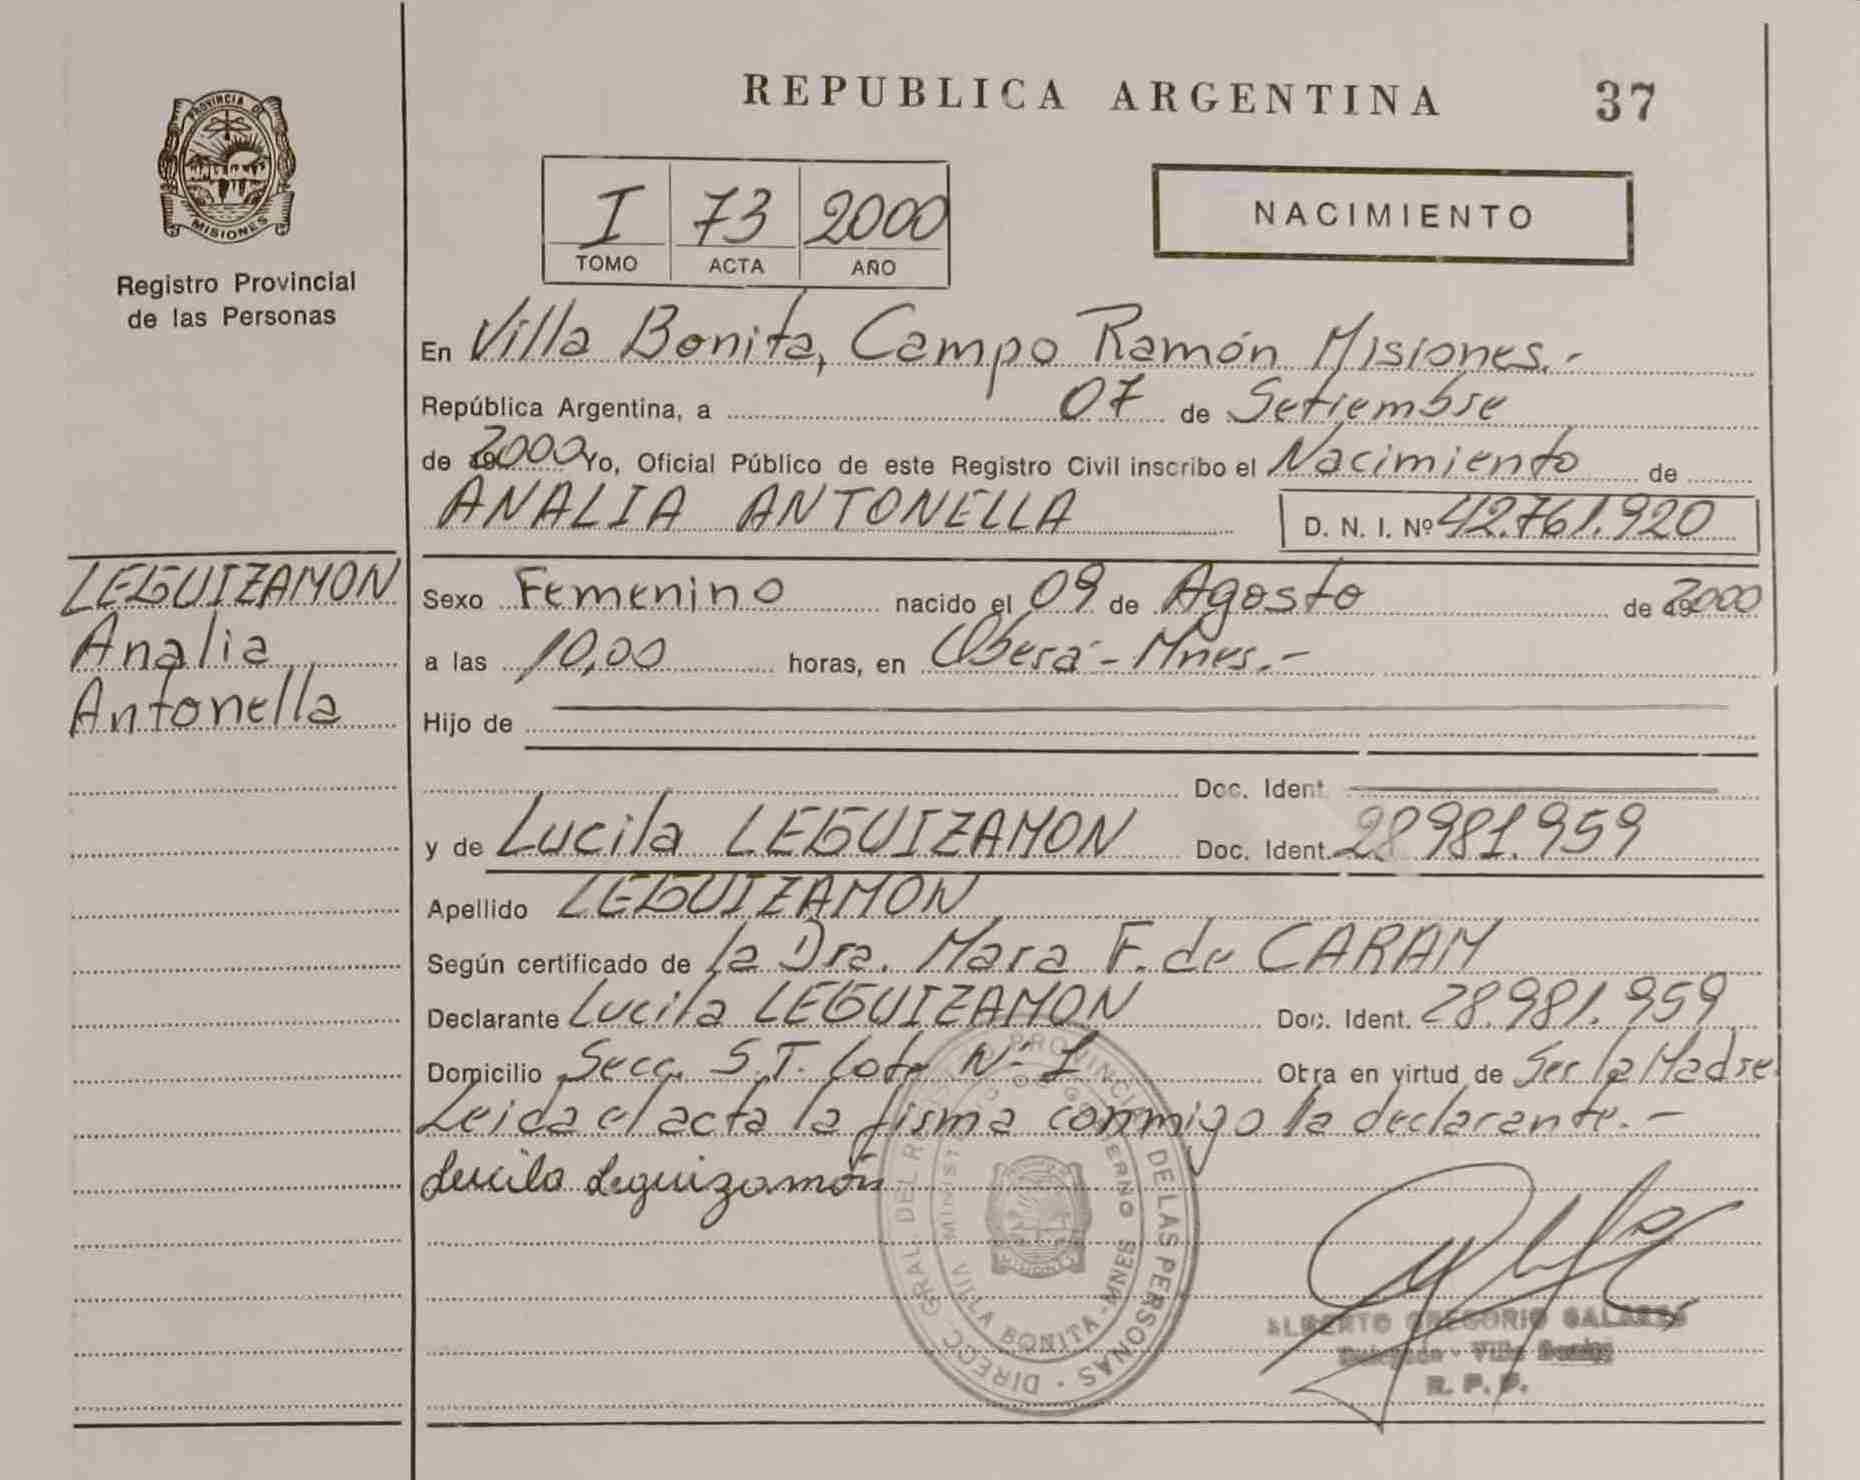 REPUBLICA ARGENTINA
37
PROVINCIA DE
MISIONES
Registro Provincial
de las Personas
I 73 2000
TOMO ACTA AÑO
NACIMIENTO
En Villa Bonita, Campo Ramón Misiones.-
República Argentina, a 07 de Setiembre
de 2000 Yo, Oficial Público de este Registro Civil inscribo el Nacimiento de
ANALIA ANTONELLA D. N. I. Nº 42.761.920
LEGUIZAMON
Analia
Antonella
Sexo Femenino nacido el 09 de Agosto de 2000
a las 10,00 horas, en Oberá - Mnes.-
Hijo de
Doc. Ident.
y de Lucila LEGUIZAMON Doc. Ident. 28.981.959
Apellido LEGUIZAMON
Según certificado de la Dra. Mara F. de CARAM
Declarante Lucila LEGUIZAMON Doc. Ident. 28.981.959
Domicilio Secc. S.T. Lote Nº 1 Otra en virtud de Ser la Madre
Leida el acta la firma conmigo la declarante.-
Lucila Leguizamón
DIRECC. GRAL. DEL PROVINCIAL DE LAS PERSONAS
MINISTERIO DE GOBIERNO
VILLA BONITA - MNES
ALBERTO GREGORIO
Villa Bonita
R. P. P.